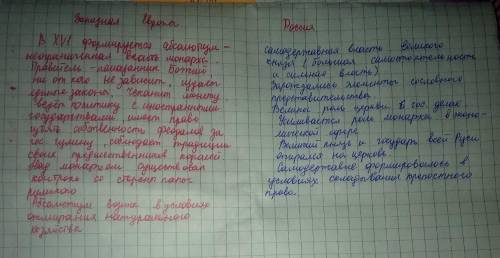 Западная Европа
В XVI формируется абсолютизм -
неограниченная власть монарха.
Правитель - помазанник Божий,
ни от кого не зависит, издаёт
единые законы, чеканит монету,
ведёт политику с иностранными
государствами, имеет право
изъять собственность феодала за
гос. измену, соблюдает традиции
своих предшественников королей.
Над монархом существовал
контроль со стороны папы
римского
Абсолютизм возник в условиях
отмирания натурального
хозяйства
Россия
самодержавная власть великого
князя (большая самостоятельность
и сильная власть)
Зарождались элементы сословного
представительства.
Велика роль церкви в гос. делах
Усиливается роль монарха в
мической сфере
Великий князь и государь всей Руси
опирался на церковь
Самодержавие формировалось в
условиях складывания крепостного
права.